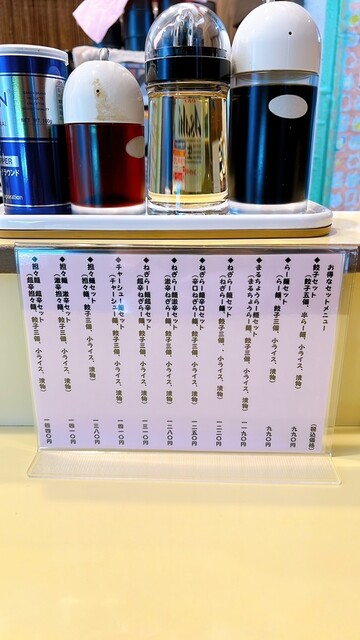 お得なセットメニュー
(税込価格)
◆餃子セット
(餃子五個、半らー麺、小ライス、漬物)
九九〇円
◆らー麺セット
(らー麺、餃子三個、小ライス、漬物)
九九〇円
◆まるちょうらー麺セット
(まるちょうらー麺、餃子三個、小ライス、漬物)
一一九〇円
◆ねぎらー麺セット
(ねぎらー麺、餃子三個、小ライス、漬物)
一二二〇円
◆ねぎらー麺辛口セット
(辛口ねぎらー麺、餃子三個、小ライス、漬物)
一二五〇円
◆ねぎらー麺激辛セット
(激辛ねぎらー麺、餃子三個、小ライス、漬物)
一二八〇円
◆ねぎらー麺超辛セット
(超辛ねぎらー麺、餃子三個、小ライス、漬物)
一三一〇円
◆チャーシュー麺セット
(チャーシュー麺、餃子三個、小ライス、漬物)
一四一〇円
◆担々麺セット
(担々麺、餃子三個、小ライス、漬物)
一三八〇円
◆担々麺 激辛セット
(激辛担々麺、餃子三個、小ライス、漬物)
一四一〇円
◆担々麺 超激辛セット
(超激辛担々麺、餃子三個、小ライス、漬物)
一四四〇円